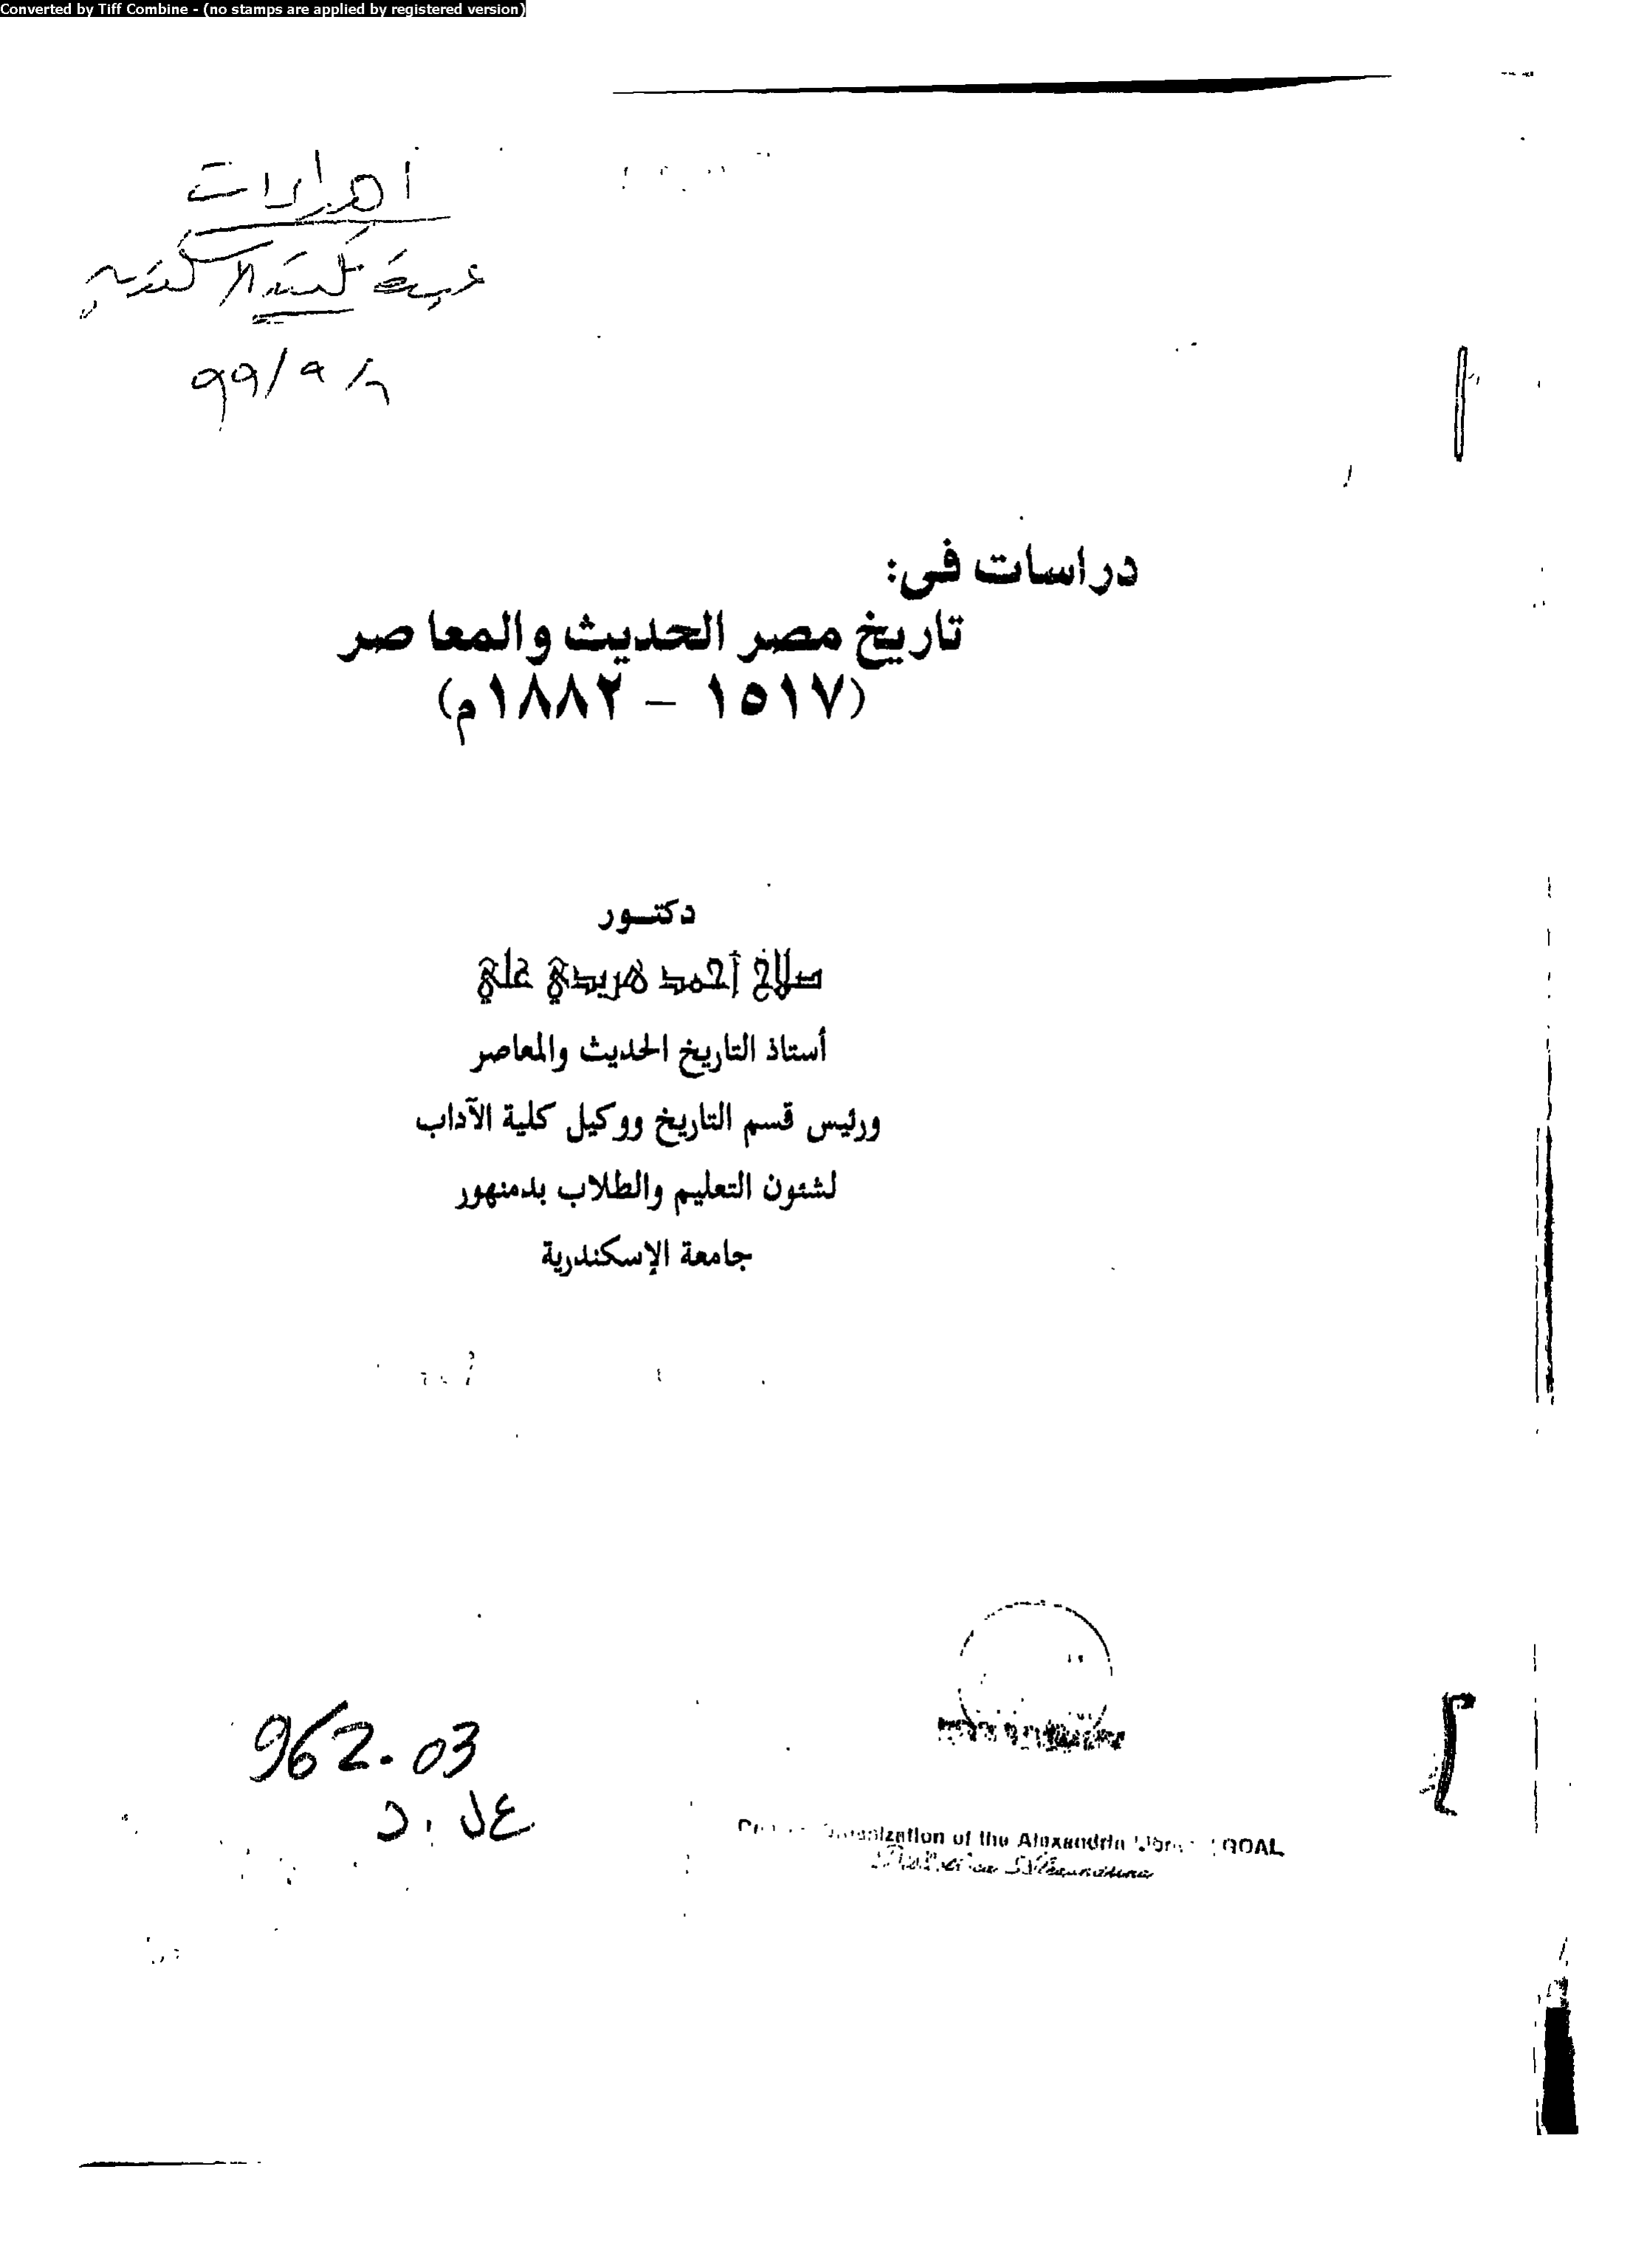 Converted by Tiff Combine - (no stamps are applied by registered version)
دراسات فى:
تاريخ مصر الحديث والمعاصر
(١٥١٧ - ١٨٨٢م)
دكتـور
صلاح أحمد هريدي علي
أستاذ التاريخ الحديث والمعاصر
ورئيس قسم التاريخ ووكيل كلية الآداب
لشئون التعليم والطلاب بدمنهور
جامعة الإسكندرية
962.03
Organization of the Alexandria GOAL